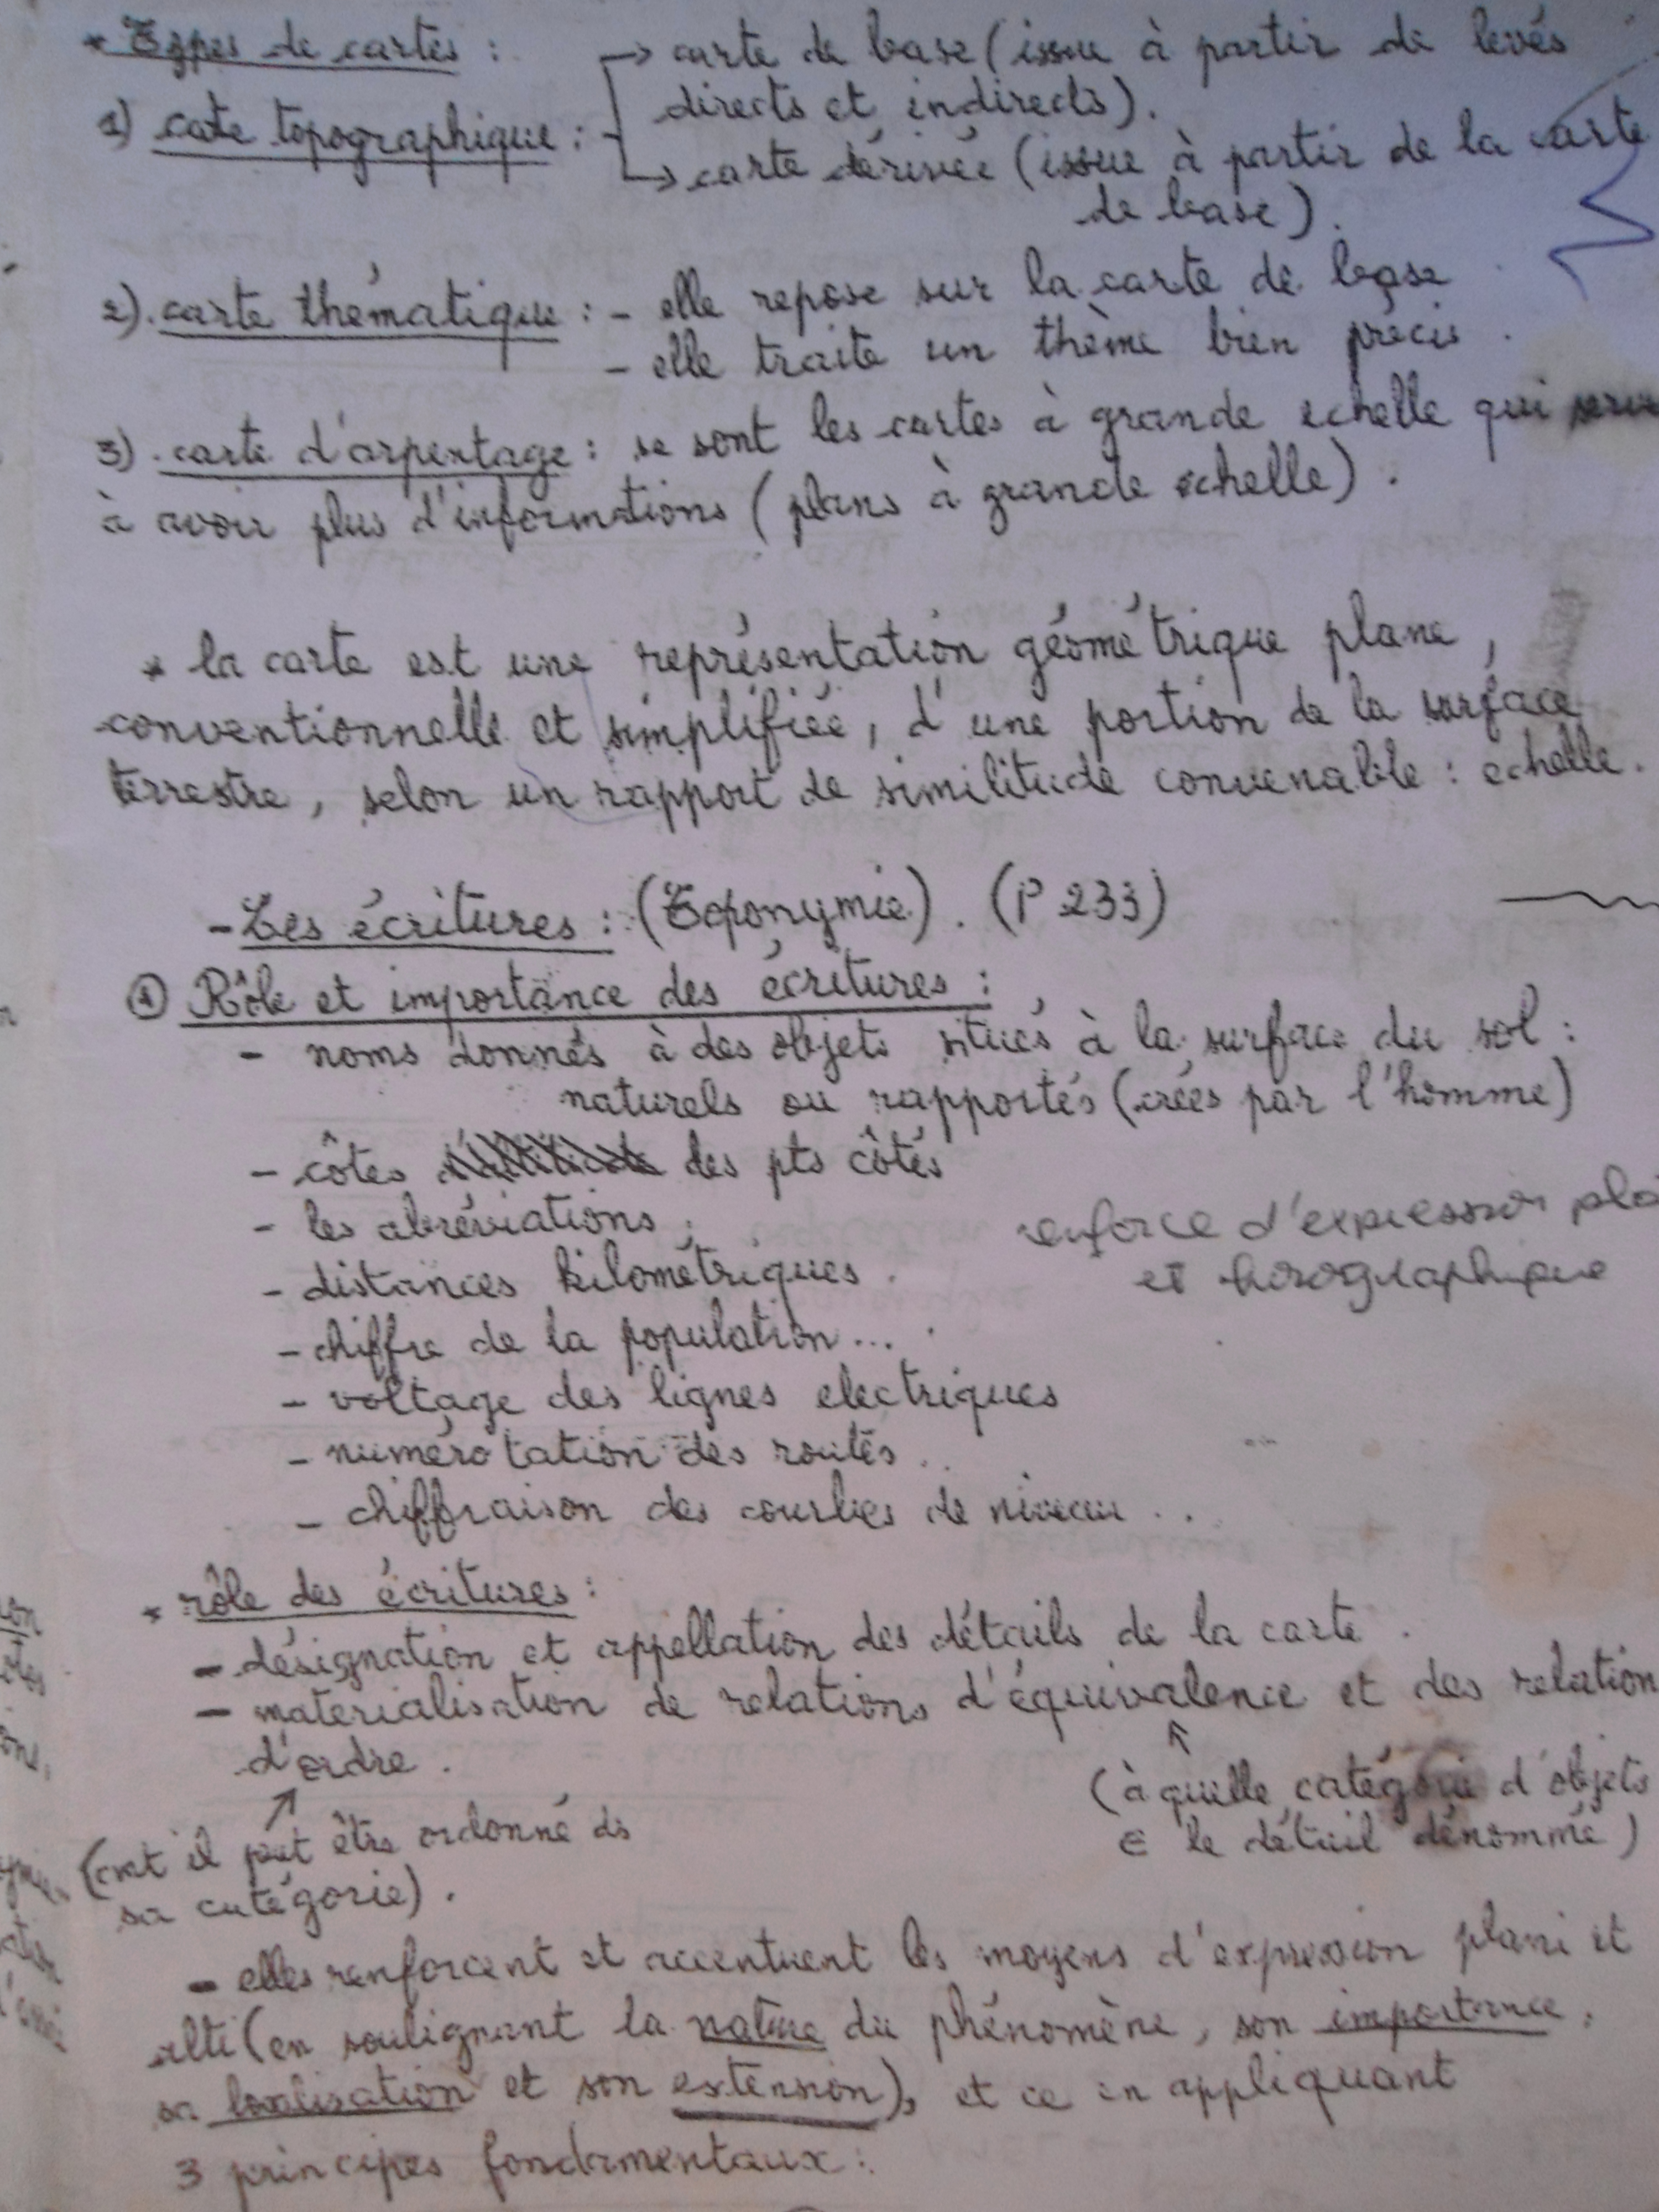 * Types de cartes :
→ carte de base (issue à partir de levés
directs et indirects).
1) cate topographique :
→ carte dérivée (issue à partir de la carte
de base).
2). carte thématique : - elle repose sur la carte de base
- elle traite un thème bien précis.
3). carte d'arpentage : se sont les cartes à grande echelle qui
à avoir plus d'informations (plans à grande echelle).
* la carte est une représentation géométrique plane,
conventionnelle et simplifiée, d'une portion de la surface
terrestre, selon un rapport de similitude convenable : echelle.
- Les écritures : (Toponymie). (P 233)
① Rôle et importance des écritures :
- noms donnés à des objets situés à la surface du sol :
naturels ou rapportés (crées par l'homme)
- côtes des pts côtés
- les abréviations.
renforce d'expression
- distances kilométriques.
et
- chiffre de la population...
- voltage des lignes electriques
- numérotation des routes..
- chiffraison des courbes de niveau..
* rôle des écritures :
- désignation et appellation des détails de la carte.
- matérialisation de relations d'équivalence et des relation
d'ordre.
↑
(à quelle catégorie d'objets
∈ le détail dénommé)
↗
(cmt il peut être ordonné ds
sa catégorie).
- elles renforcent et accentuent les moyens d'expression plani et
alti (en soulignant la nature du phénomène, son importance,
sa localisation et son extension), et ce en appliquant
3 principes fondamentaux :